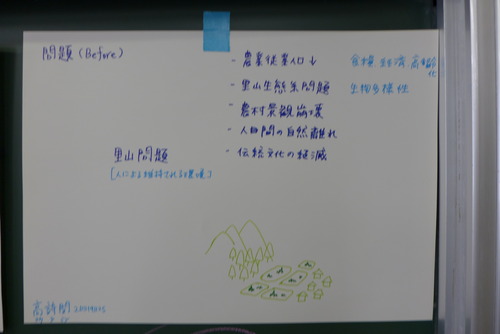 問題 (Before)
- 農業従業人口↓
食糧 経済 高齢化
- 里山生態系問題
生物多様性
- 農村景観崩壊
- 人間の自然離れ
- 伝統文化の
里山問題
[人による維持される環境]